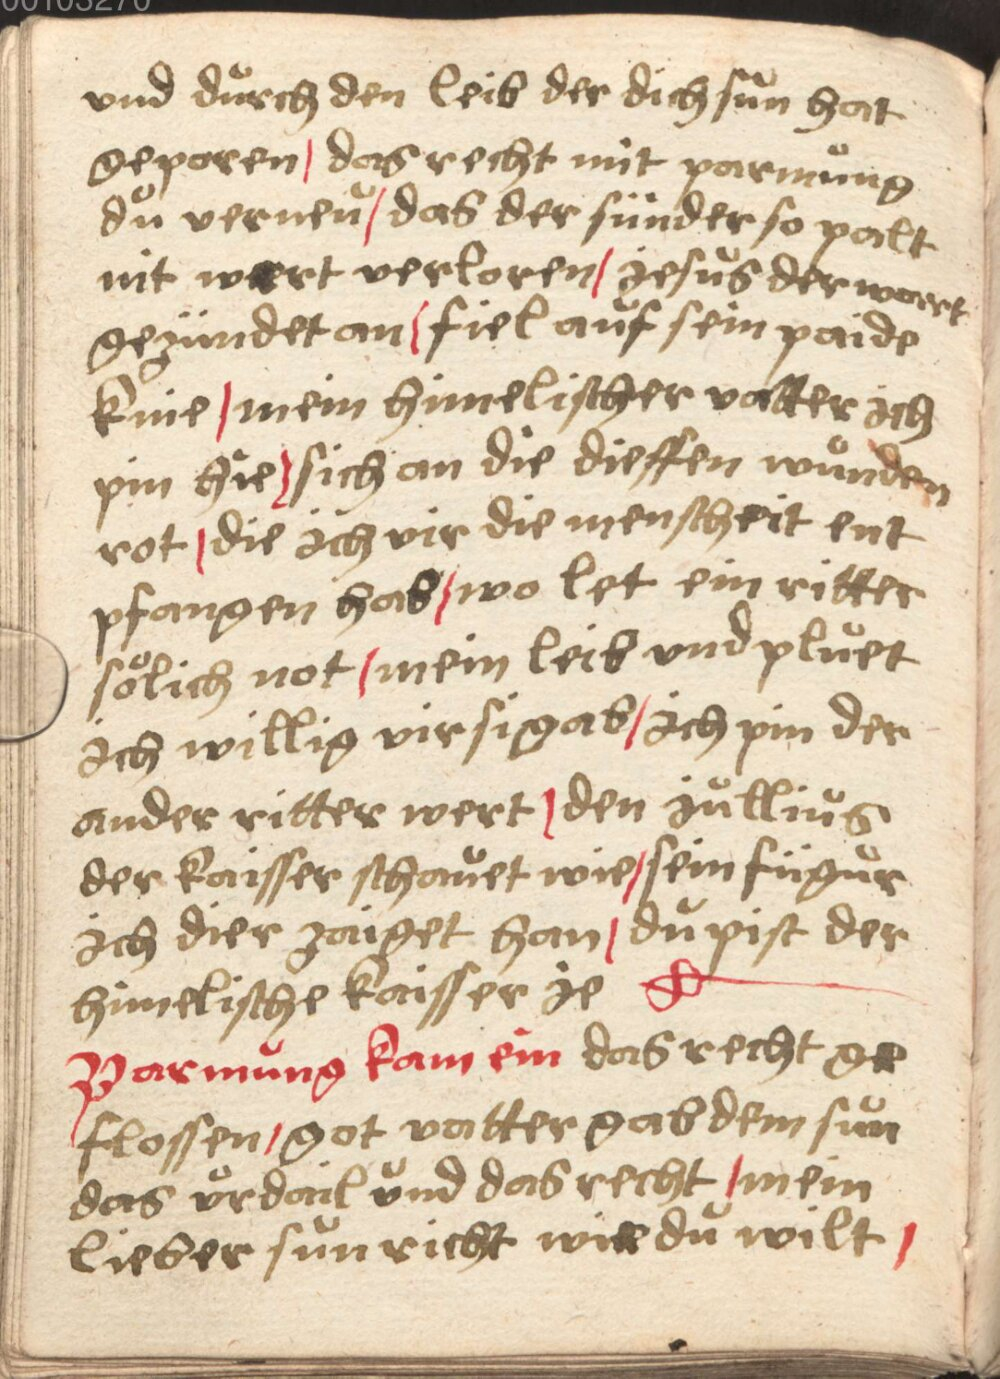 00103270
vnd důrch den leib der dich sůn hat
geporen / das recht mit parmůng
dů verneů / das der sünder so palt
nit wert verloren / jesůs der wartt
gezündet an / fiel aůf sein paide
knie / mein himelischer vatter jch
pin hie / sich an die dieffen wůnden
rot / die jch vir die menscheit ent
pfangen hab / wo let ein ritter
sölich not / mein leib vnd plůet
jch willig vir si gab / jch pin der
ander ritter wert / den jůlliůs
der kaisser schaůet wie / sein fügůr
jch dier zaiget han / dů pist der
himelische kaisser je
Parmůng kam ein das recht ge
flossen / got vatter gab dem sůn
das ůrdail ůnd das recht / mein
lieber sůn richt wie dů wilt /